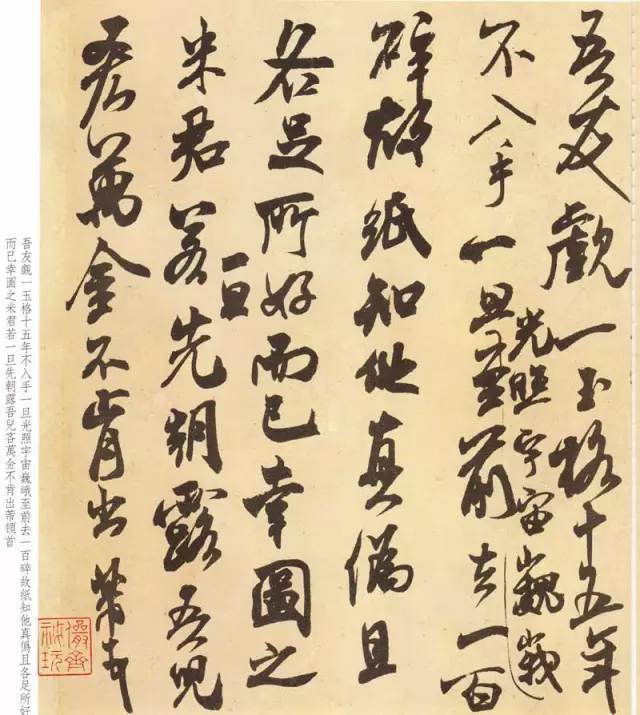 吾友觀一玉格十五年
光照宇宙巍峩
不入手一旦至前去一百
碎故紙知他真偽且
各足所好而已幸圖之
一旦
米君若先朝露吾兒
吝萬金不肯出芾頓首
儼齋
秘玩
吾友觀一玉格十五年不入手一旦光照宇宙巍峨至前去一百碎故紙知他真偽且各足所好
而已幸圖之米君若一旦先朝露吾兒吝萬金不肯出蒂頓首